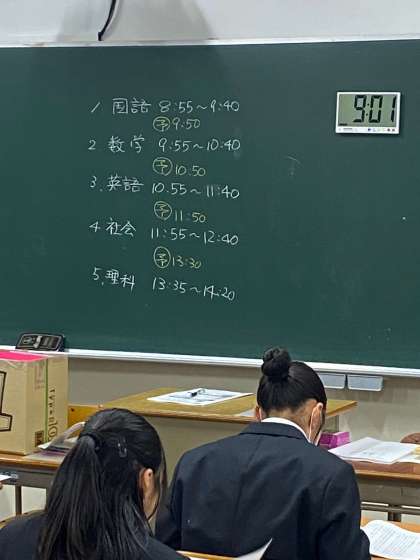 1. 国語 8:55～9:40
予 9:50
2. 数学 9:55～10:40
予 10:50
3. 英語 10:55～11:40
予 11:50
4. 社会 11:55～12:40
予 13:30
5. 理科 13:35～14:20
9:01